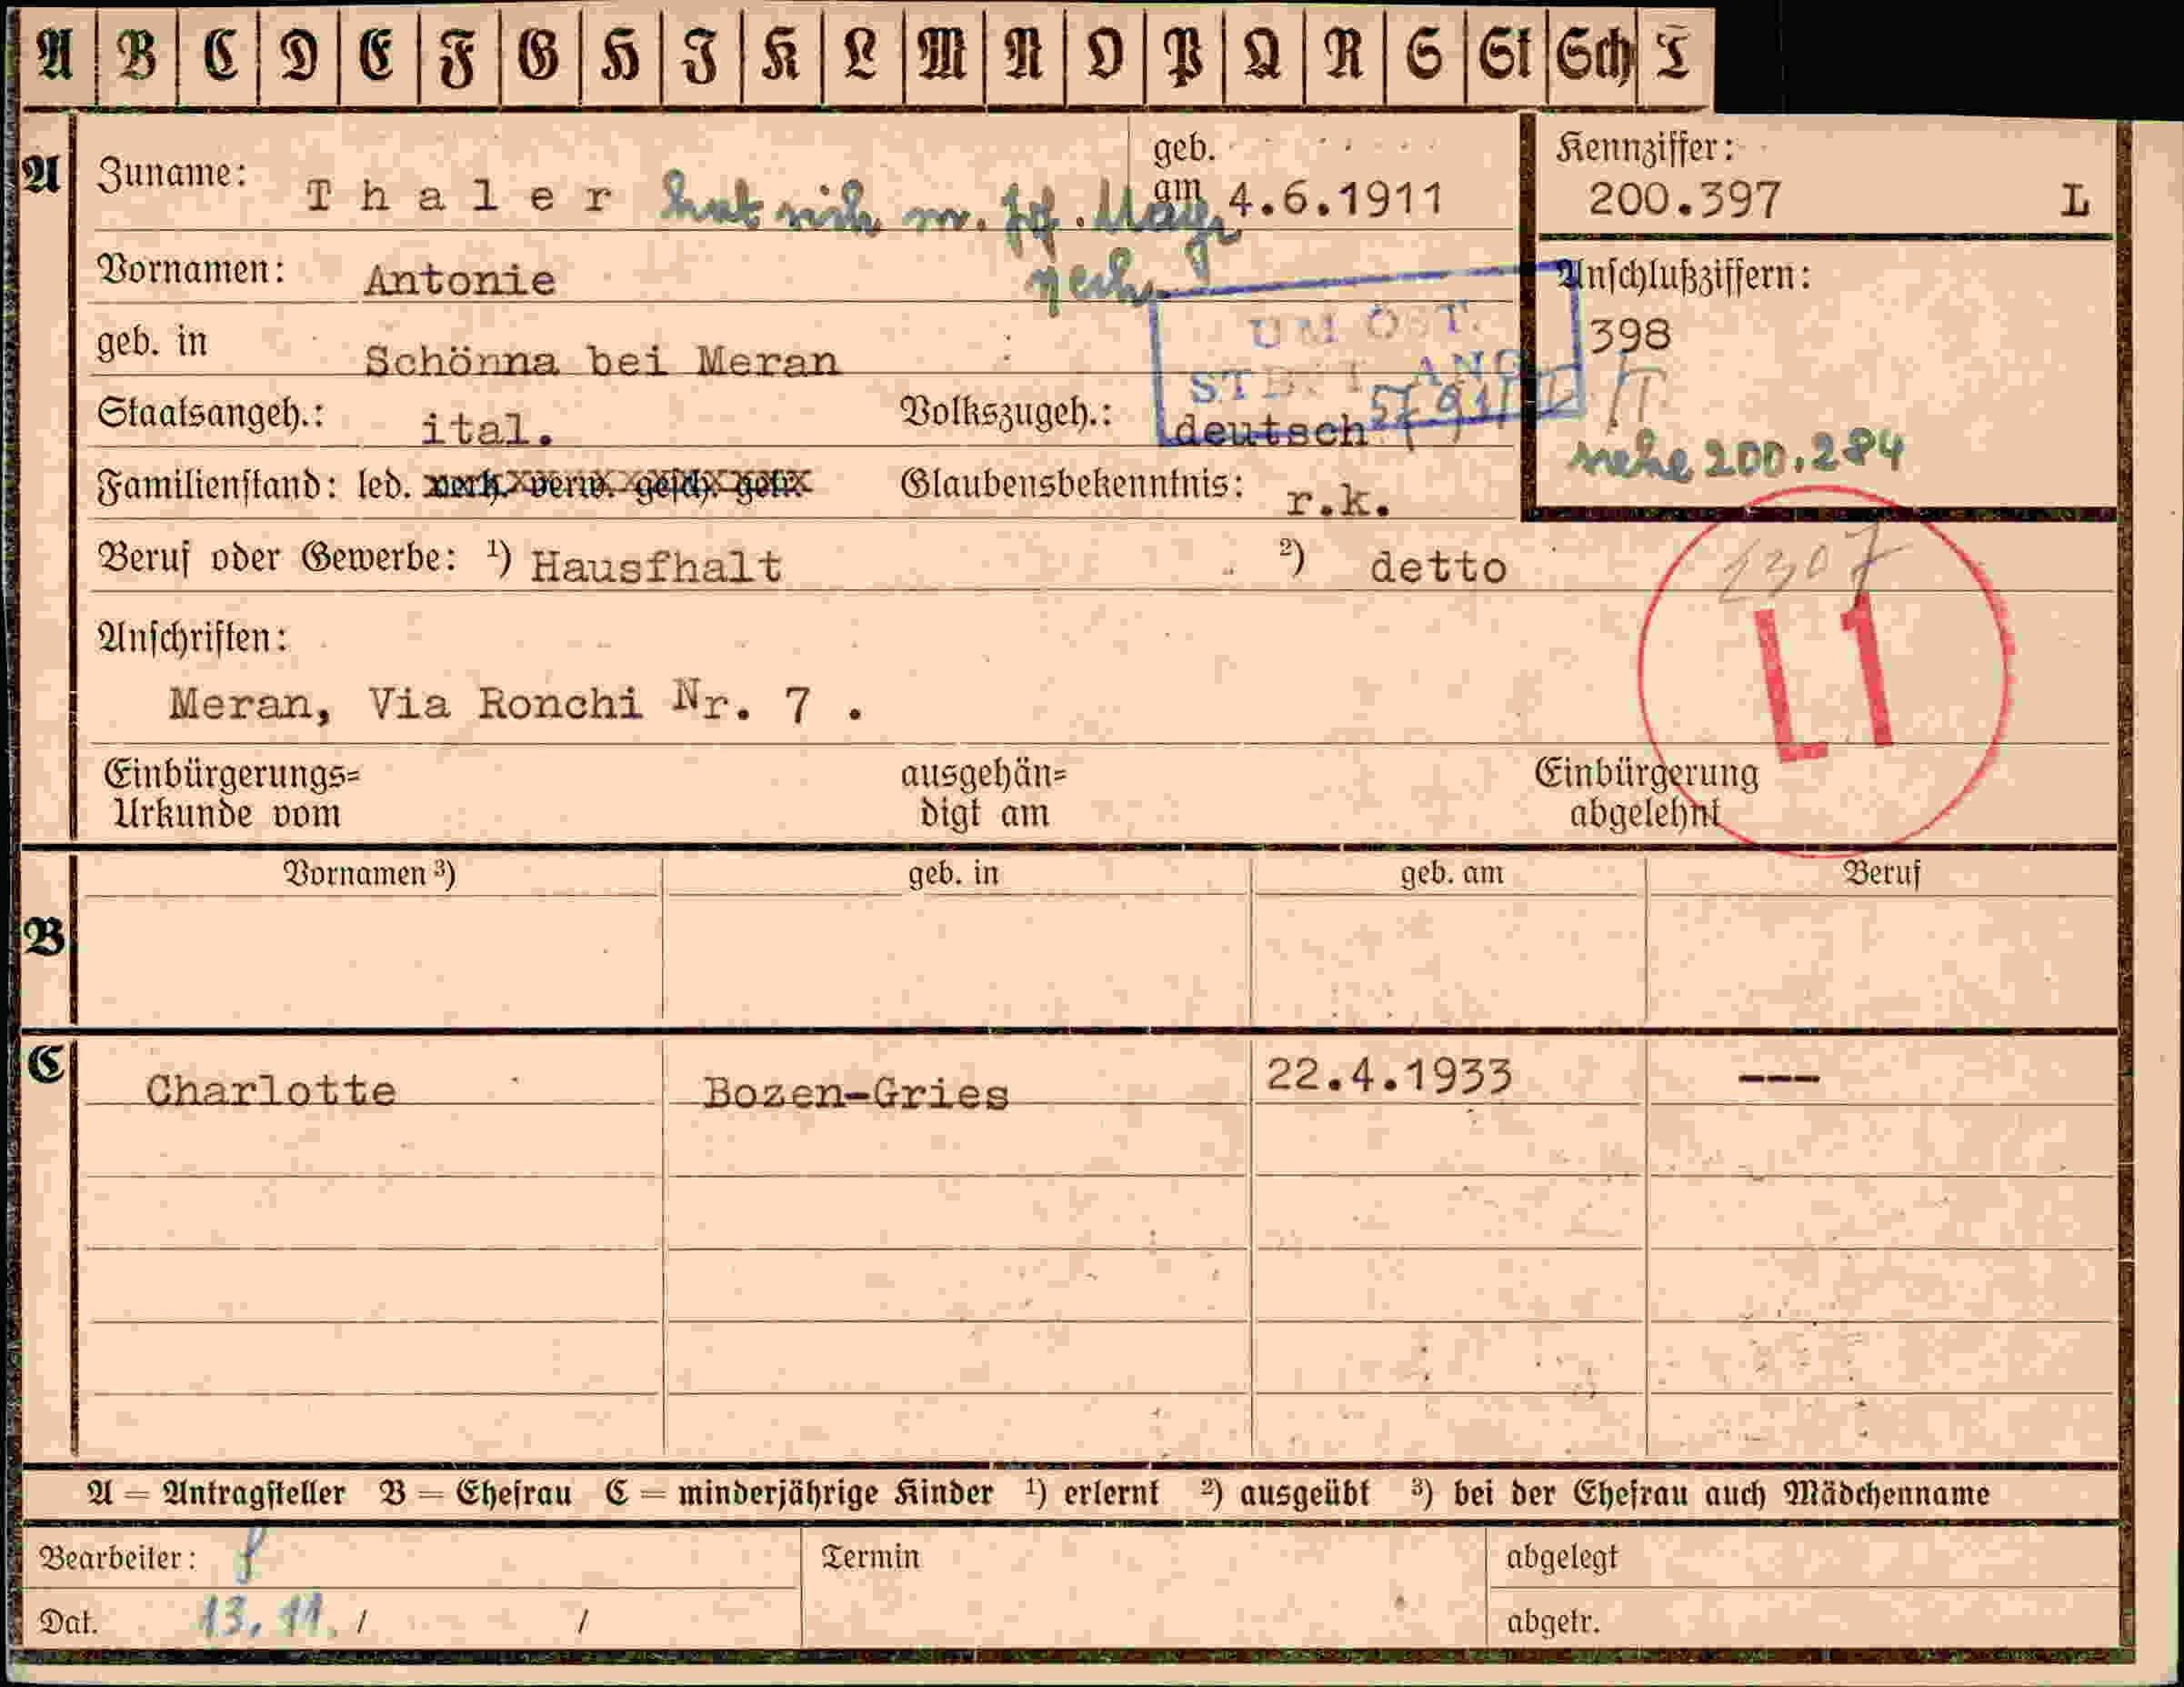 A B C D E F G H I K L M N O P Q R S St Sch T
A
Zuname: Thaler hat sich m. Jos. Mayr
geb. am 4.6.1911
Kennziffer:
200.397 L
Vornamen: Antonie
Anschlußziffern:
398
siehe 200.284
geb. in Schönna bei Meran
UM OST.
Staatsangeh.: ital.
Volkszugeh.: deutsch
Familienstand: led. verh. verw. gesch. getr.
Glaubensbekenntnis: r.k.
Beruf oder Gewerbe: ¹) Hausfhalt ²) detto
1307
L1
Anschriften:
Meran, Via Ronchi Nr. 7 .
Einbürgerungs=
Urkunde vom
ausgehän=
digt am
Einbürgerung
abgelehnt
B
Vornamen ³) geb. in geb. am Beruf
C
Charlotte Bozen-Gries 22.4.1933 ---
A = Antragsteller B = Ehefrau C = minderjährige Kinder ¹) erlernt ²) ausgeübt ³) bei der Ehefrau auch Mädchenname
Bearbeiter:
Termin
abgelegt
Dat. 13.11. / /
abgetr.